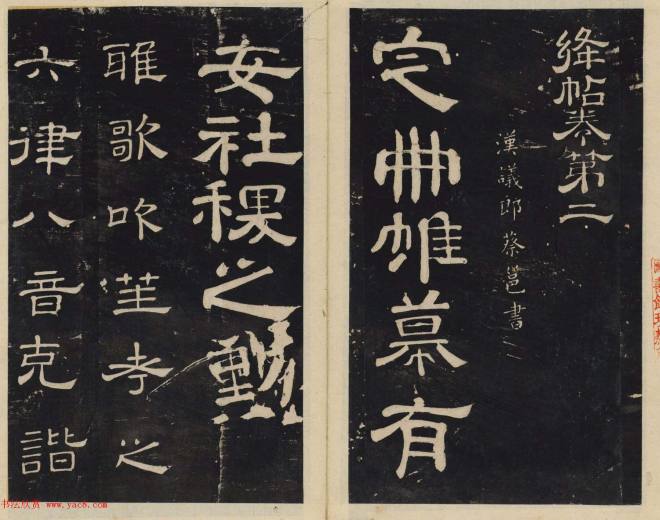 絳帖卷第二
漢議郎蔡邕書
定冊帷幕有
安社稷之勳
雖歌吹萑孝之
六律八音克諧
书法欣赏 www.yac8.com